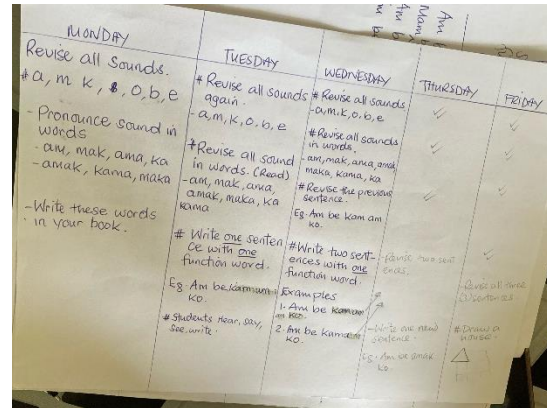 MONDAY
Revise all sounds.
# a, m k, o, b, e
- Pronounce sound in
words
- am, mak, ama, ka
- amak, kama, maka
- Write these words
in your book.
TUESDAY
# Revise all sounds
again.
- a, m, k, o, b, e
# Revise all sound
in words. (Read)
- am, mak, ama,
amak, maka, ka
kama
# Write one senten
ce with one
function word.
Eg. Am be
ko.
# Students hear, say,
see, write.
WEDNESDAY
# Revise all sounds
- a, m, k, o, b, e
# Revise all sounds
in words.
- am, mak, ama, amak
maka, kama, ka
# Revise the previous
sentence.
Eg. Am be kam am
ko.
# Write two sent-
ences with one
function word.
Examples
1. Am be kam am
ko.
2. Am be
ko.
THURSDAY
✓
✓
✓
- Revise two sent
ences.
- Write one new
sentence.
Eg. Am be amak
ko.
FRIDAY
✓
✓
✓
- Revise all three
(3) sentences
# Draw a
house.
Am
Mam
Am b